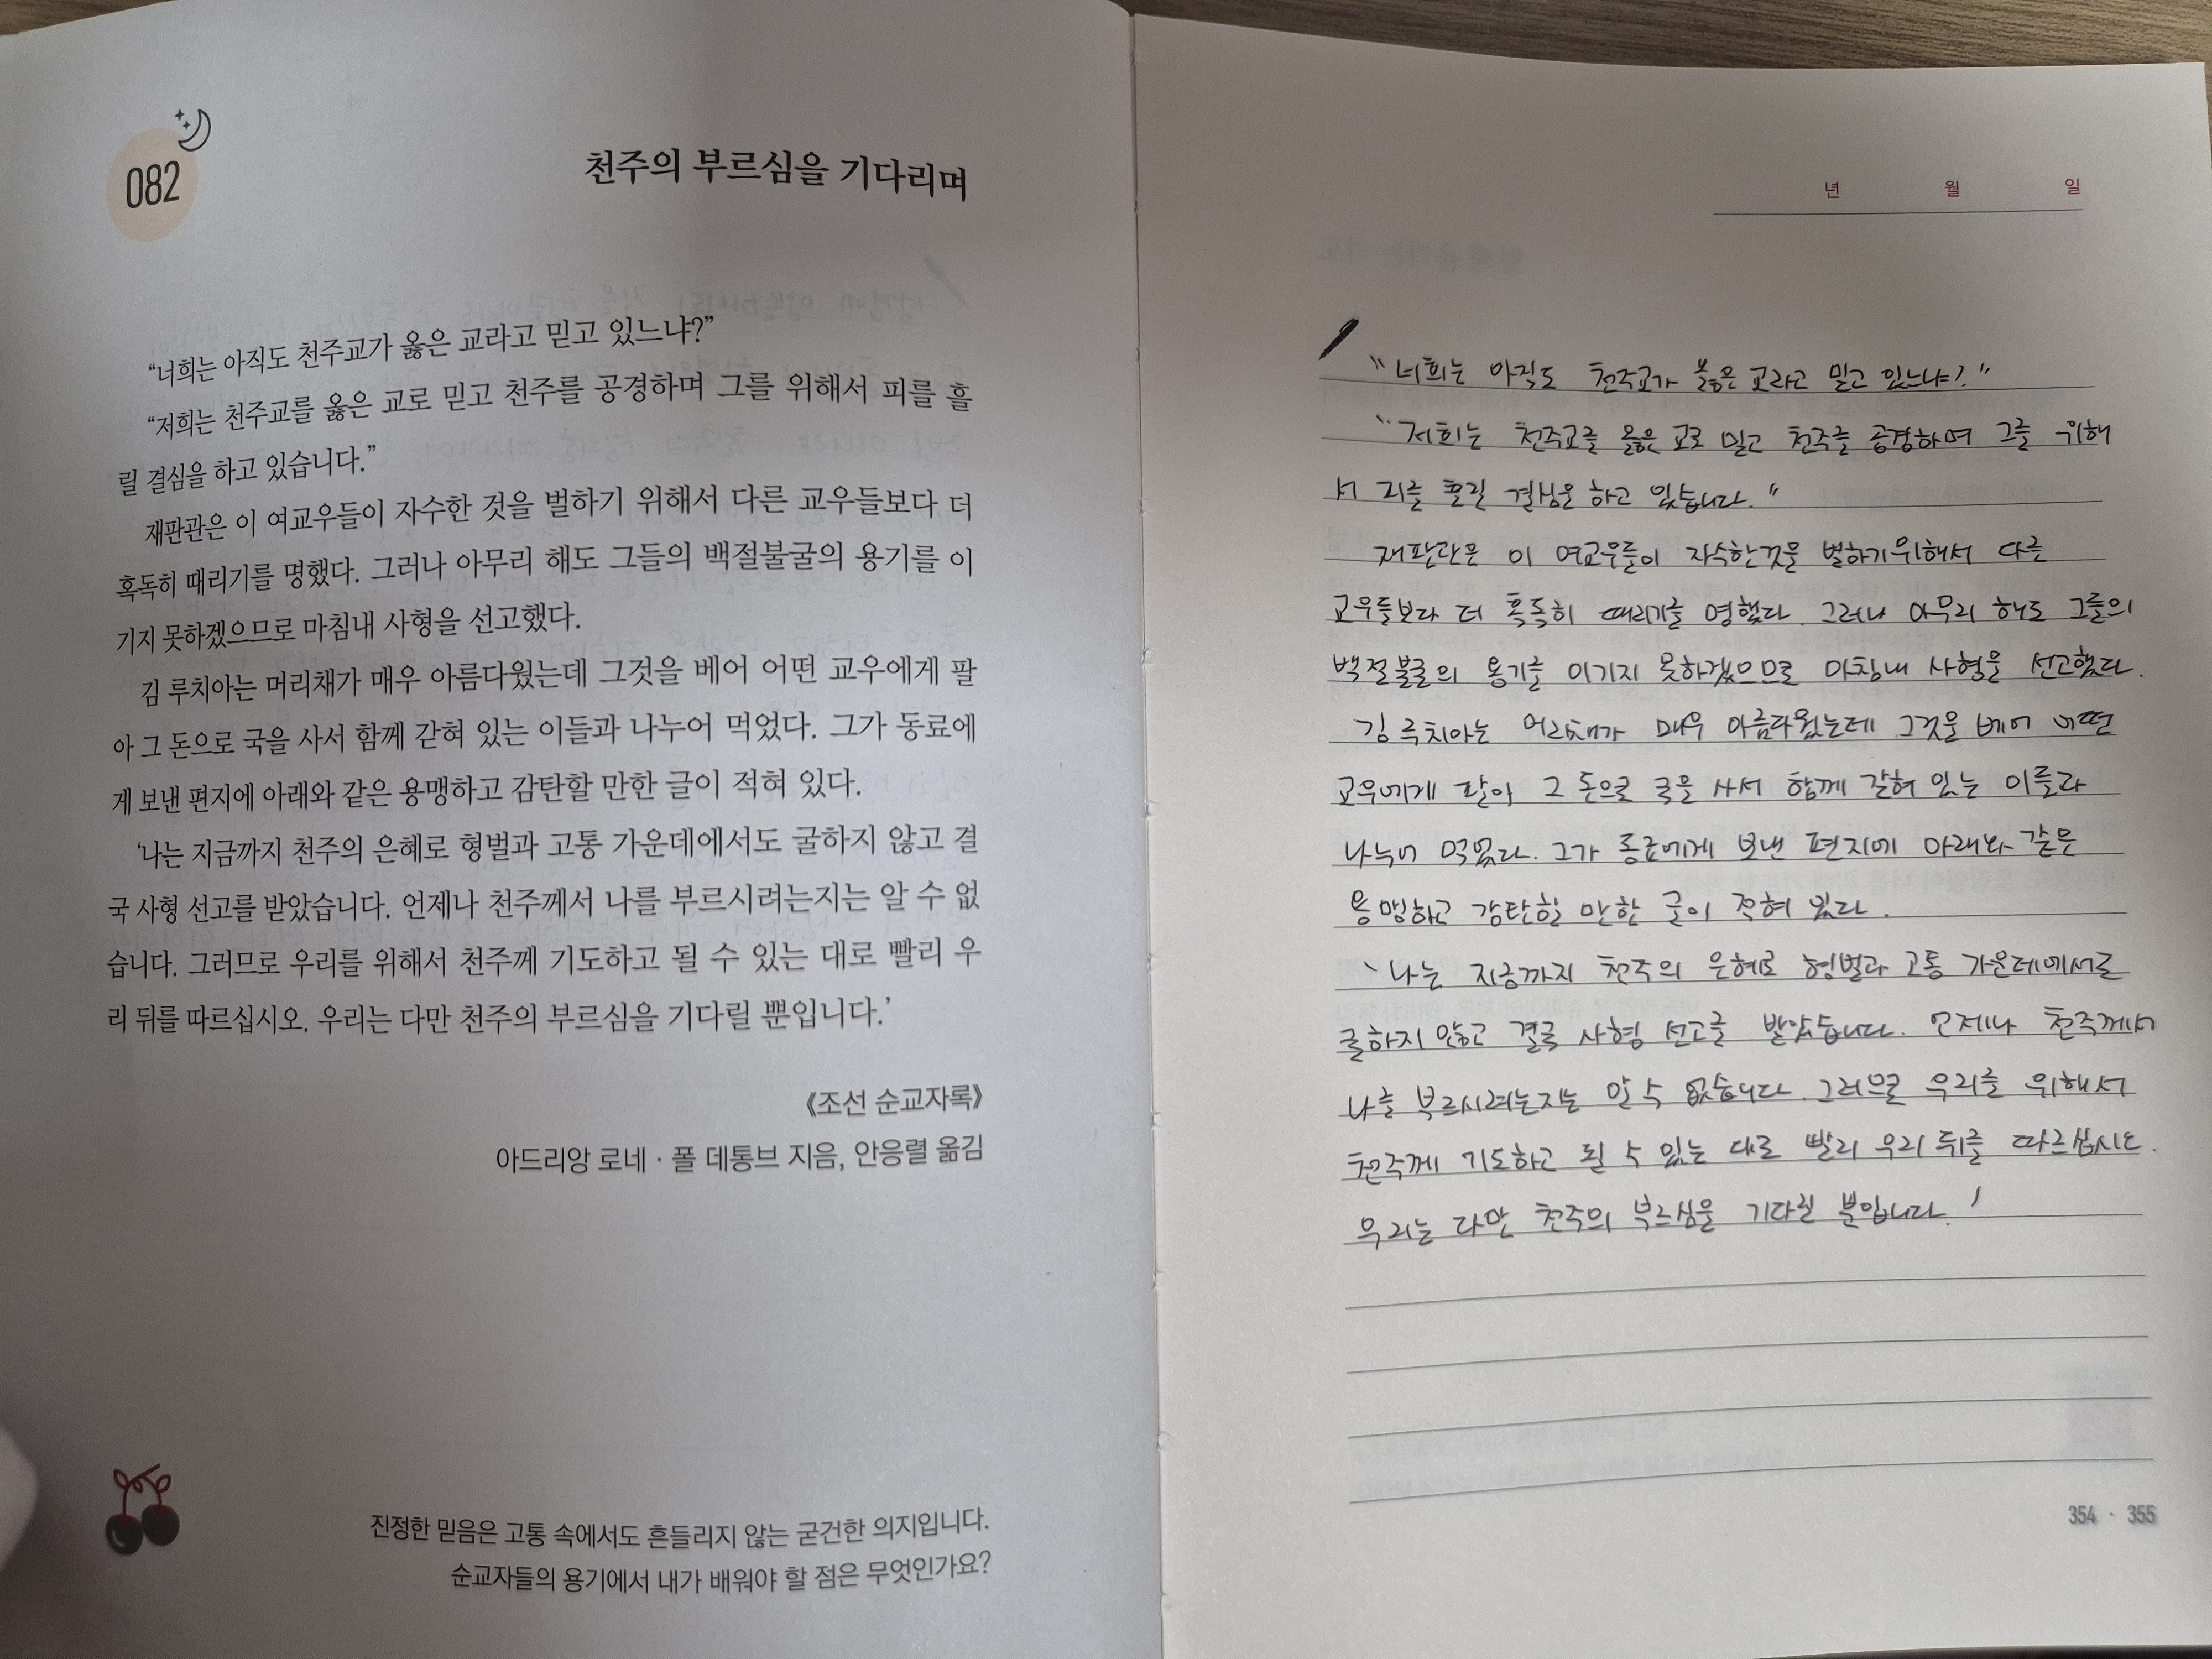 082
천주의 부르심을 기다리며
“너희는 아직도 천주교가 옳은 교라고 믿고 있느냐?”
“저희는 천주교를 옳은 교로 믿고 천주를 공경하며 그를 위해서 피를 흘
릴 결심을 하고 있습니다.”
재판관은 이 여교우들이 자수한 것을 벌하기 위해서 다른 교우들보다 더
혹독히 때리기를 명했다. 그러나 아무리 해도 그들의 백절불굴의 용기를 이
기지 못하겠으므로 마침내 사형을 선고했다.
김 루치아는 머리채가 매우 아름다웠는데 그것을 베어 어떤 교우에게 팔
아 그 돈으로 국을 사서 함께 갇혀 있는 이들과 나누어 먹었다. 그가 동료에
게 보낸 편지에 아래와 같은 용맹하고 감탄할 만한 글이 적혀 있다.
‘나는 지금까지 천주의 은혜로 형벌과 고통 가운데에서도 굴하지 않고 결
국 사형 선고를 받았습니다. 언제나 천주께서 나를 부르시려는지는 알 수 없
습니다. 그러므로 우리를 위해서 천주께 기도하고 될 수 있는 대로 빨리 우
리 뒤를 따르십시오. 우리는 다만 천주의 부르심을 기다릴 뿐입니다.’
《조선 순교자록》
아드리앙 로네 · 폴 데통브 지음, 안응렬 옮김
진정한 믿음은 고통 속에서도 흔들리지 않는 굳건한 의지입니다.
순교자들의 용기에서 내가 배워야 할 점은 무엇인가요?
년 월 일
“너희는 아직도 천주교가 옳은 교라고 믿고 있느냐?”
“저희는 천주교를 옳은 교로 믿고 천주를 공경하며 그를 위해
서 피를 흘릴 결심을 하고 있습니다.”
재판관은 이 여교우들이 자수한것을 벌하기위해서 다른
교우들보다 더 혹독히 때리기를 명했다. 그러나 아무리 해도 그들의
백절불굴의 용기를 이기지 못하겠으므로 마침내 사형을 선고했다.
김 루치아는 머리채가 매우 아름다웠는데 그것을 베어 어떤
교우에게 팔아 그 돈으로 국을 사서 함께 갇혀 있는 이들과
나누어 먹었다. 그가 동료에게 보낸 편지에 아래와 같은
용맹하고 감탄할 만한 글이 적혀 있다.
‘나는 지금까지 천주의 은혜로 형벌과 고통 가운데에서도
굴하지 않고 결국 사형 선고를 받았습니다. 언제나 천주께서
나를 부르시려는지는 알 수 없습니다. 그러므로 우리를 위해서
천주께 기도하고 될 수 있는 대로 빨리 우리 뒤를 따르십시오.
우리는 다만 천주의 부르심을 기다릴 뿐입니다.’
354 · 355